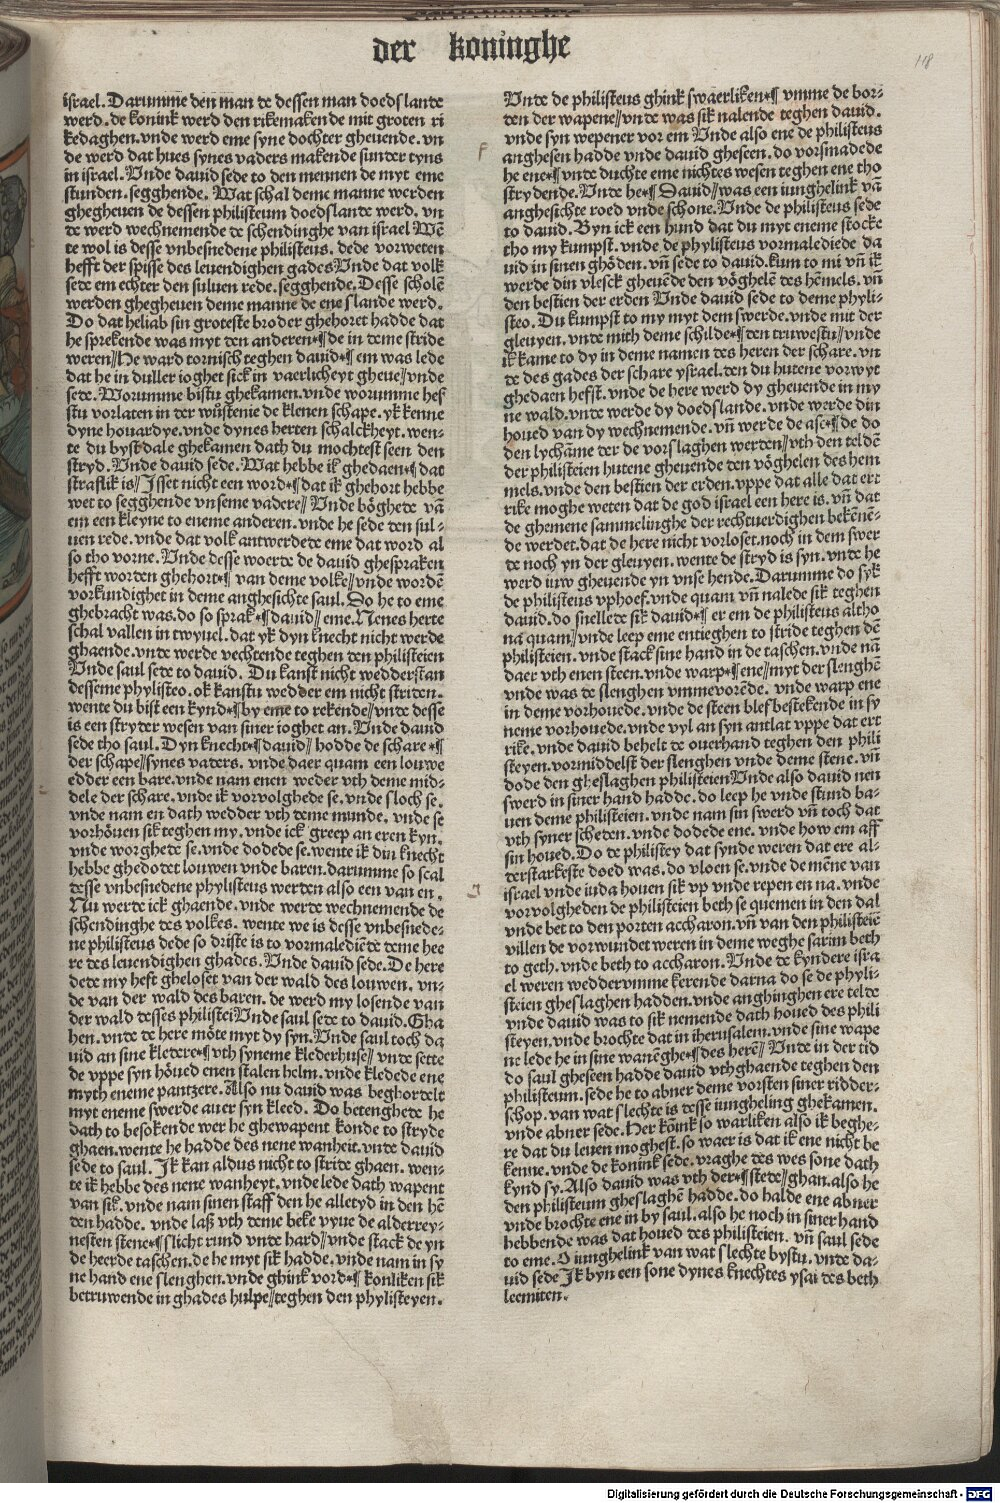 der koninghe
118
israel. Darumme den man de dessen man doedslande
werd. de konink werd den rikemakende mit groten ri
kedaghen. vnde werd eme syne dochter gheuende. vn
de werd dat hues synes vaders makende sunder tyns
in israel. Vnde dauid sede to den mennen de myt eme
stunden. segghende. Wat schal deme manne werden
ghegheuen de dessen philisteum doedslande werd. vn
de werd wechnemende de schendinghe van israel Wē
te wol is desse vnbesnedene philisteus. dede vorweten
hefft der spisse des leuendighen gades Vnde dat volk
sede em echter den suluen rede. segghende. Desse scholē
werden ghegheuen deme manne de ene slande werd.
Do dat heliab sin groteste broder ghehoret hadde dat
he sprekende was myt den anderen*¶ de in deme stride
weren// He ward tornisch teghen dauid*¶ em was lede
dat he in duller ioghet sick in vaerlicheyt gheue// vnde
sede. Worumme bistu ghekamen. vnde worumme hef
stu vorlaten in der wůstenie de klenen schape. yk kenne
dyne houardye. vnde dynes herten schalckheyt. wen-
te du byst dale ghekamen dath du mochtest seen den
stryd. Vnde dauid sede. Wat hebbe ik ghedaen*¶ dat
straflik is// Isset nicht een word*¶ dat ik ghehort hebbe
wet to segghende vnseme vadere// Vnde bőghede vā
em een kleyne to eneme anderen. vnde he sede den sul-
uen rede. vnde dat volk antwerdede eme dat word al
so tho vorne. Vnde desse woerde de dauid ghespraken
hefft worden ghehort*¶ van deme volke// vnde wordē
vorkundighet in deme anghesichte saul. Do he to eme
ghebracht was. do so sprak*¶ dauid// eme. Nenes herte
schal vallen in twyuel. dat yk dyn knecht nicht werde
ghaende. vnde werde vechtende teghen den philisteien
Vnde saul sede to dauid. Du kanst nicht wedderstan
desseme phylisteo. ok kanstu wedder em nicht striden.
wente du bist een kynd*¶ by eme to rekende// vnde desse
is een stryder wesen van siner ioghet an. Vnde dauid
sede tho saul. Dyn knecht*¶ dauid// hodde de schare*¶
der schape// synes vaders. vnde daer quam een louwe
edder een bare. vnde nam enen weder vth deme mid-
dele der schare. vnde ik vorvolghede se. vnde sloch se.
vnde nam en dath wedder vth deme munde. vnde se
vorhőuen sik teghen my. vnde ick greep an eren kyn.
vnde worghede se. vnde dodede se. wente ik din knecht
hebbe ghedodet louwen vnde baren. darumme so scal
desse vnbesnedene phylisteus werden also een van en.
Nu werde ick ghaende. vnde werde wechnemende de
schendinghe des volkes. wente we is desse vnbesnede-
ne philisteus dede so driste is to vormaledi&#275;de deme hee
re des leuendighen ghades. Vnde dauid sede. De here
dede my heft gheloset van der wald des louwen. vn-
de van der wald des baren. de werd my losende van
der wald desses philistei Vnde saul sede to dauid. Gha
hen. vnde de here mőte myt dy syn. Vnde saul toch da
uid an sine kledere*¶ vth syneme klederhuse// vnde sette
de vppe syn hőued enen stalen helm. vnde kledede ene
myth eneme pantzere. Also nu dauid was beghordelt
myt eneme swerde auer syn kleed. Do betenghede he
dath to besokende wer he ghewapent konde to stryde
ghaen. wente he hadde des nene wanheit. vnde dauid
sede to saul. Ik kan aldus nicht to stride ghaen. wen-
te ik hebbe des nene wanheyt. vnde lede dath wapent
van sik. vnde nam sinen staff den he alletyd in den hē
den hadde. vnde laß vth deme beke vyue de alderrey-
nesten stene*¶ slicht rund vnde hard// vnde stack de yn
de heerde taschen. de he myt sik hadde. vnde nam in sy
ne hand ene slenghen. vnde ghink vord*¶ konliken sik
betruwende in ghades hulpe// teghen den phylisteyen.
Vnde de philisteus ghink swaerliken*¶ vmme de bor-
den der wapene// vnde was sik nalende teghen dauid.
vnde syn wepener vor em Vnde also ene de philisteus
anghesen hadde vnde dauid gheseen. do vorsmadede
he ene*¶ vnde duchte eme nichtes wesen teghen ene tho
strydende. Vnde he*¶ Dauid// was een iunghelink vā
anghesichte roed vnde schone. Vnde de philisteus sede
to dauid. Byn ick een hund dat du myt eneme stocke
tho my kumpst. vnde de phylisteus vormalediede da
uid in sinen ghőden. vn̄ sede to dauid. kum to mi vn̄ ik
werde din vlesck gheuēde den vőghelē des hēmels. vn̄
den bestien der erden Vnde dauid sede to deme phyli-
steo. Du kumpst to my myt dem swerde. vnde mit der
gleuyen. vnde mith deme schilde*¶ den truwestu// vnde
ik kame to dy in deme namen des heren der schare. vn
de des gades der schare ysrael. den du hutene vorwyt
ghedaen hefst. vnde de here werd dy gheuende in my
ne wald. vnde werde dy doedslande. vnde werde din
houed van dy wechnemende. vn̄ werde de ase*¶ de do
den lychāme der de vorslaghen werden// vth den teldē
der philisteien hutene gheuende den vőghelen des hem
mels. vnde den bestien der erden. vppe dat alle dat ert
rike moghe weten dat de god israel een here is. vn̄ dat
de ghemene sammelinghe der rechtuerdighen bekēnē-
de werdet. dat de here nicht vorloset. noch in dem swer
de noch yn der gleuyen. wente de stryd is syn. vnde he
werd iuw gheuende yn vnse hende. Darumme do syk
de philisteus vphoef. vnde quam. vn̄ nalede sik teghen
dauid. do snellede sik dauid*¶ er em de philisteus altho
na quam// vnde leep eme entieghen to stride teghen dē
philisteien. vnde stack sine hand in de taschen. vnde nā
daer vth enen steen. vnde warp*¶ ene// myt der slenghē
vnde was de slenghen vmmevorēde. vnde warp ene
in deme vorhouede. vnde de steen blef bestekende in sy
neme vorhouede. vnde vyl an syn antlat vppe dat ert
rike. vnde dauid behelt de ouerhand teghen den phili
steyen. vormiddelst der slenghen vnde deme stene. vn̄
dode den gheslaghen philisteien Vnde also dauid nen
swerd in siner hand hadde. do leep he vnde stund ba-
uen deme philisteien. vnde nam sin swerd vn̄ toch dat
vth syner scheden. vnde dodede ene. vnde how em aff
sin houed. Do de philistey dat synde weren dat ere al-
derstarkeste doed was. do vloen se. vnde de mēne van
israel vnde iuda houen sik vp vnde repen en na. vnde
vorvolgheden de philisteien beth se quemen in den dal
vnde bet to den porten accharon. vn̄ van den philisteiē
villen de vorwundet weren in deme weghe sarim beth
to geth. vnde beth to accharon. Vnde de kyndere isra
el weren weddervmme kerende darna do se de phyli-
steien gheslaghen hadden. vnde anghinghen ere telde
vnde dauid was to sik nemende dath houed des phili
steyen. vnde brochte dat in iherusalem. vnde sine wape
ne lede he in sine wanēghe*¶ des herē// Vnde in der tid
do saul gheseen hadde dauid vthghaende teghen den
philisteum. sede he to abner deme vorsten siner ridder-
schop. van wat slechte is desse iungheling ghekamen.
vnde abner sede. Her kőink so warliken also ik beghe-
re dat du leuen moghest. so waer is dat ik ene nicht be
kenne. vnde de konink sede. vraghe des wes sone dath
kynd sy. Also dauid was vth der*¶ stede// ghan. also he
den philisteum gheslaghē hadde. do halde ene abner
vnde brochte ene in by saul. also he noch in siner hand
hebbende was dat houed des philisteien. vn̄ saul sede
to eme. O iunghelink van wat slechte bystu. vnde da-
uid sede Ik byn een sone dynes knechtes ysai des beth
leemiten.
Digitalisierung gefördert durch die Deutsche Forschungsgemeinschaft - DFG